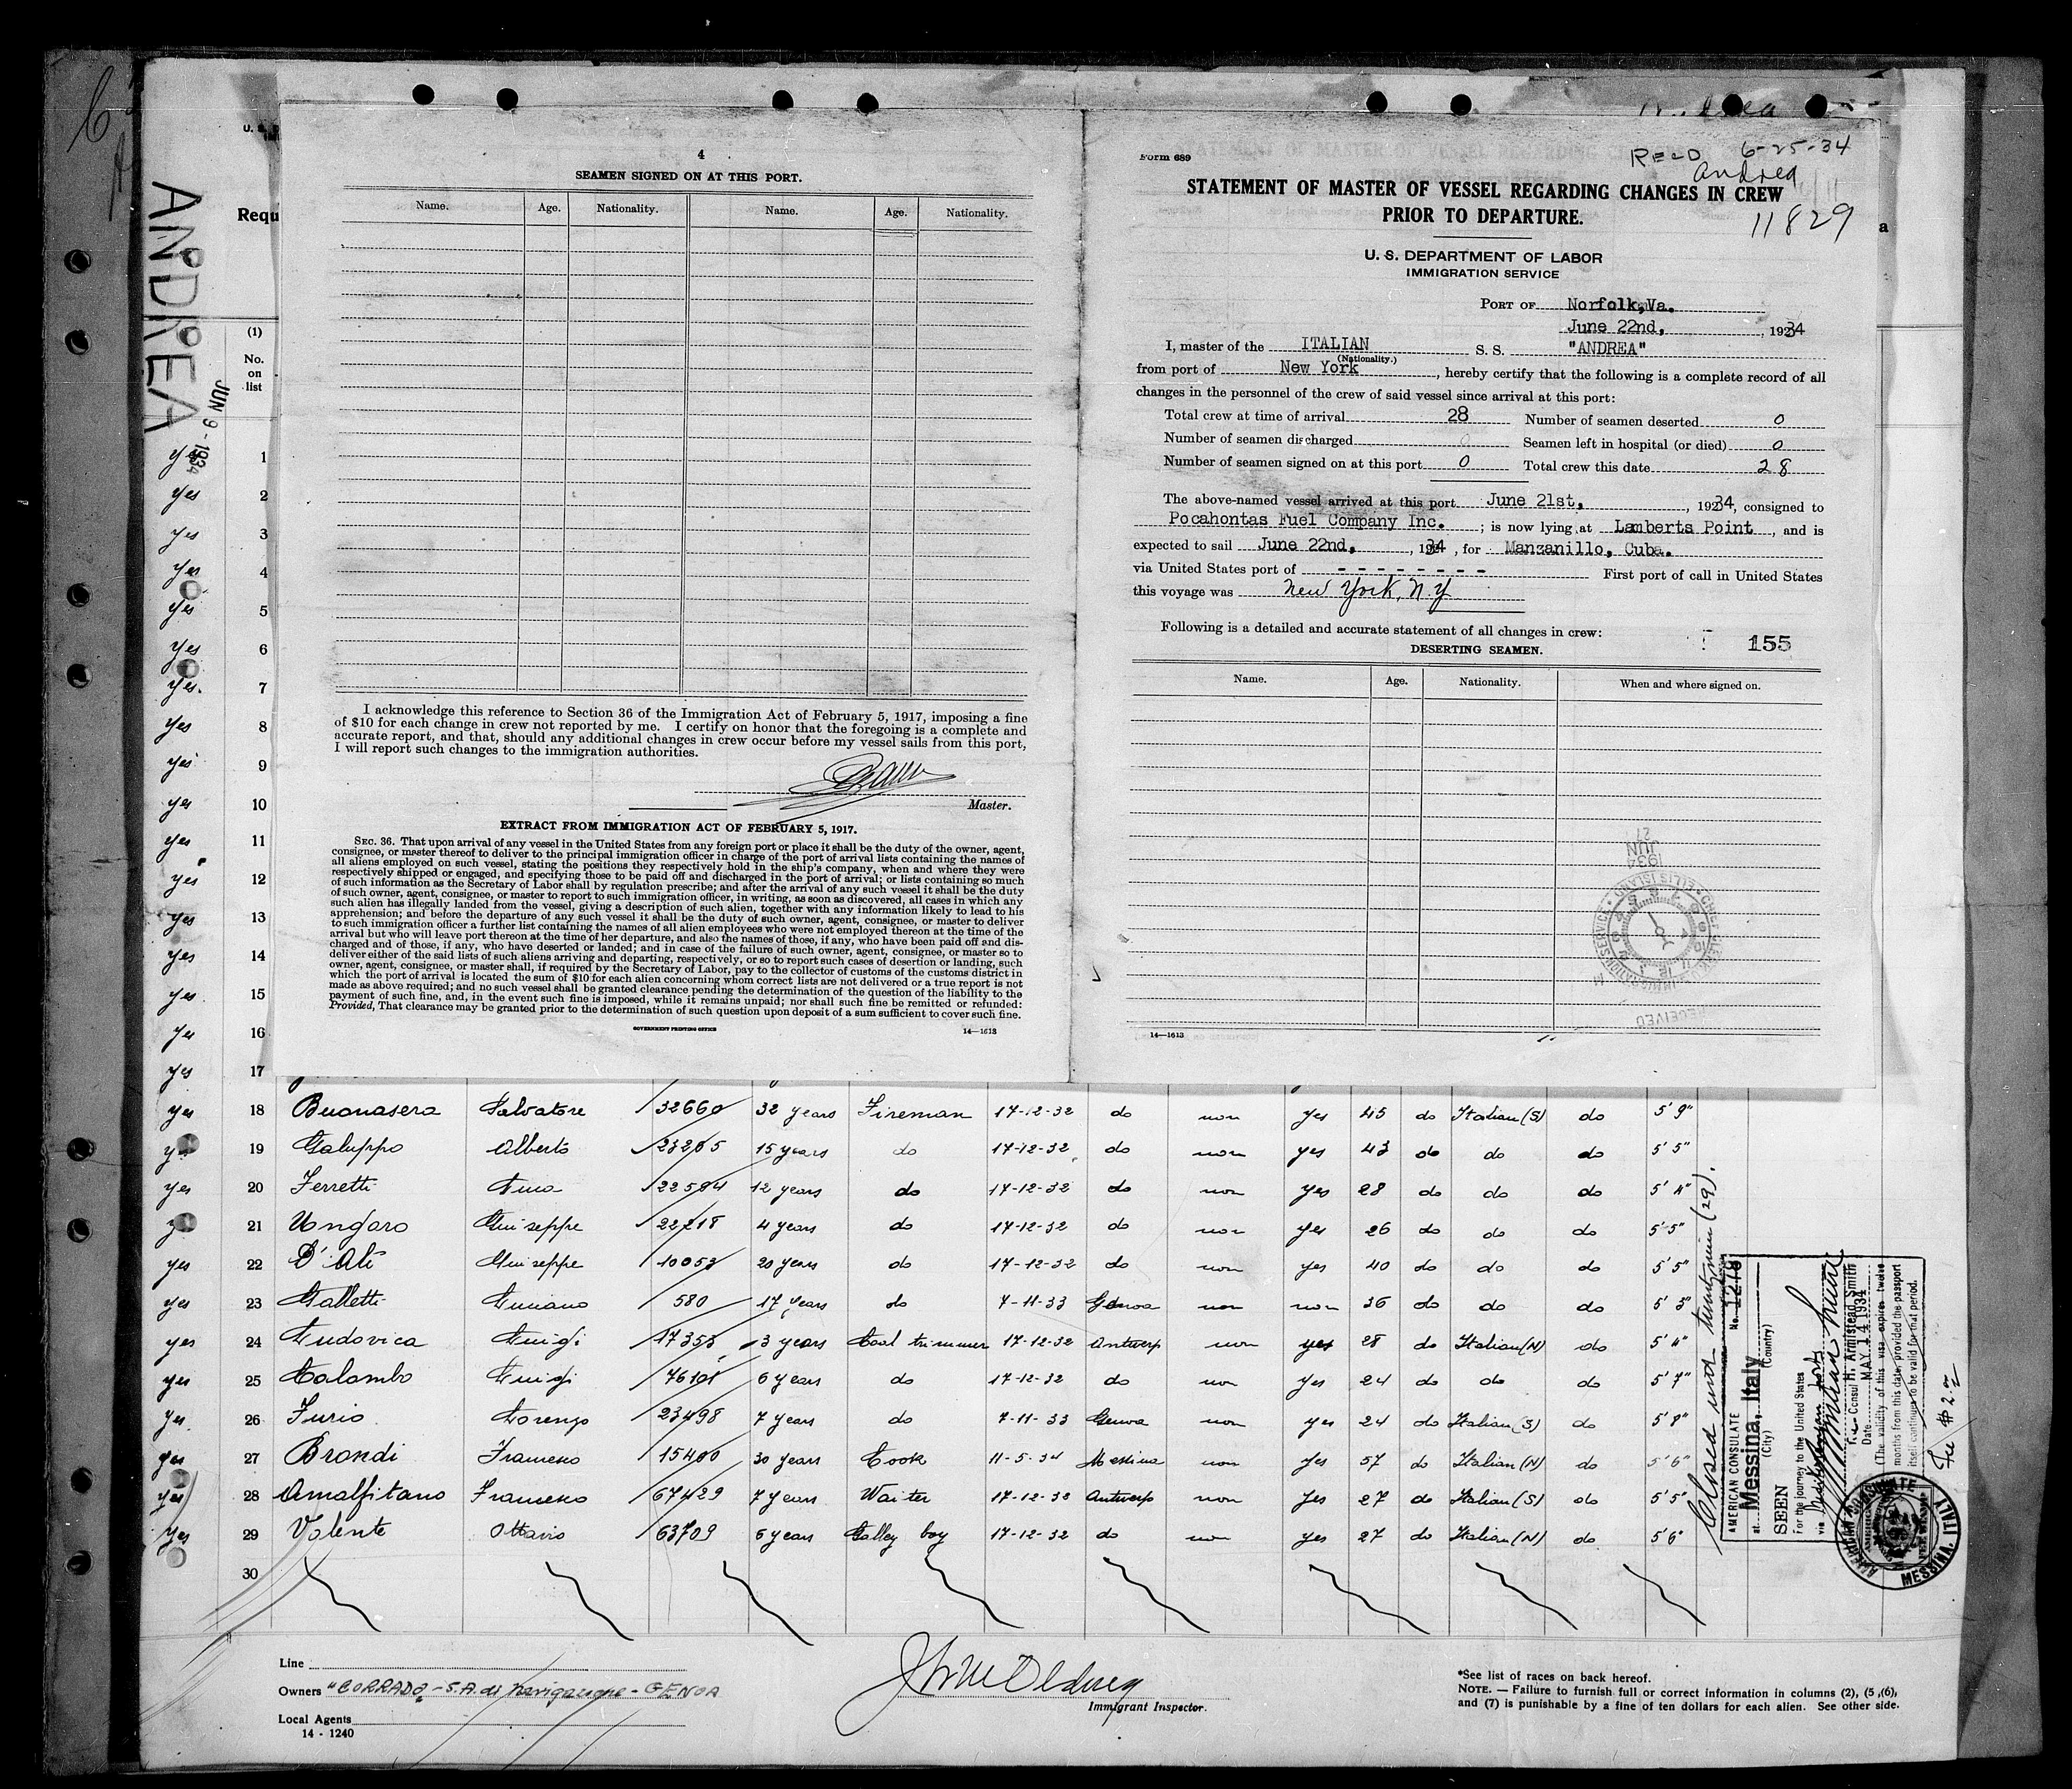 ANDREA
JUN 9 - 1934
U. S.
Requ
(1)
No.
on
list
4
SEAMEN SIGNED ON AT THIS PORT.
Name. Age. Nationality. Name. Age. Nationality.
I acknowledge this reference to Section 36 of the Immigration Act of February 5, 1917, imposing a fine
of $10 for each change in crew not reported by me. I certify on honor that the foregoing is a complete and
accurate report, and that, should any additional changes in crew occur before my vessel sails from this port,
I will report such changes to the immigration authorities.
Master.
EXTRACT FROM IMMIGRATION ACT OF FEBRUARY 5, 1917.
SEC. 36. That upon arrival of any vessel in the United States from any foreign port or place it shall be the duty of the owner, agent,
consignee, or master thereof to deliver to the principal immigration officer in charge of the port of arrival lists containing the names of
all aliens employed on such vessel, stating the positions they respectively hold in the ship's company, when and where they were
respectively shipped or engaged, and specifying those to be paid off and discharged in the port of arrival; or lists containing so much
of such information as the Secretary of Labor shall by regulation prescribe; and after the arrival of any such vessel it shall be the duty
of such owner, agent, consignee, or master to report to such immigration officer, in writing, as soon as discovered, all cases in which any
such alien has illegally landed from the vessel, giving a description of such alien, together with any information likely to lead to his
apprehension; and before the departure of any such vessel it shall be the duty of such owner, agent, consignee, or master to deliver
to such immigration officer a further list containing the names of all alien employees who were not employed thereon at the time of the
arrival but who will leave port thereon at the time of her departure, and also the names of those, if any, who have been paid off and dis-
charged and of those, if any, who have deserted or landed; and in case of the failure of such owner, agent, consignee, or master so to
deliver either of the said lists of such aliens arriving and departing, respectively, or so to report such cases of desertion or landing, such
owner, agent, consignee, or master shall, if required by the Secretary of Labor, pay to the collector of customs of the customs district in
which the port of arrival is located the sum of $10 for each alien concerning whom correct lists are not delivered or a true report is not
made as above required; and no such vessel shall be granted clearance pending the determination of the question of the liability to the
payment of such fine, and, in the event such fine is imposed, while it remains unpaid; nor shall such fine be remitted or refunded:
Provided, That clearance may be granted prior to the determination of such question upon deposit of a sum sufficient to cover such fine.
GOVERNMENT PRINTING OFFICE 14—1613
Form 689
REC'D 6-25-34
Andrea
STATEMENT OF MASTER OF VESSEL REGARDING CHANGES IN CREW
PRIOR TO DEPARTURE.
11829
U. S. DEPARTMENT OF LABOR
IMMIGRATION SERVICE
PORT OF Norfolk, Va.
June 22nd, 1934
I, master of the ITALIAN S. S. "ANDREA"
(Nationality.)
from port of New York, hereby certify that the following is a complete record of all
changes in the personnel of the crew of said vessel since arrival at this port:
Total crew at time of arrival 28 Number of seamen deserted 0
Number of seamen discharged 0 Seamen left in hospital (or died) 0
Number of seamen signed on at this port 0 Total crew this date 28
The above-named vessel arrived at this port June 21st, 1934, consigned to
Pocahontas Fuel Company Inc. ; is now lying at Lamberts Point, and is
expected to sail June 22nd, 1934, for Manzanillo, Cuba.
via United States port of - - - - - - - - First port of call in United States
this voyage was New York, N.Y
Following is a detailed and accurate statement of all changes in crew:
155
DESERTING SEAMEN.
Name. Age. Nationality. When and where signed on.
RECEIVED
IMMIGRATION SERVICE
ELLIS ISLAND
1934 JUN 27
14—1613
yes 1
yes 2
yes 3
yes 4
yes 5
yes 6
yes 7
yes 8
yes 9
yes 10
yes 11
yes 12
yes 13
yes 14
yes 15
yes 16
yes 17
yes 18 Buonasera Salvatore 32660 32 years Fireman 17-12-32 do non yes 45 do Italian (S) do 5' 9"
yes 19 Galuppo Alberto 23205 15 years do 17-12-32 do non yes 43 do do do 5' 5"
yes 20 Ferretti Gino 22584 12 years do 17-12-32 do non yes 28 do do do 5' 4"
yes 21 Ungaro Giuseppe 22218 4 years do 17-12-32 do non yes 26 do do do 5' 5"
yes 22 D'Alì Giuseppe 10053 20 years do 17-12-32 do non yes 40 do do do 5' 5"
yes 23 Galletti Luciano 580 17 years do 7-11-33 Genoa non non 36 do do do 5' 3"
yes 24 Ludovica Luigi 17353 3 years Coal trimmer 17-12-32 Antwerp non yes 28 do Italian (N) do 5' 4"
yes 25 Colombo Luigi 76101 6 years do 17-12-32 do non yes 24 do do do 5' 7"
yes 26 Furio Lorenzo 23498 7 years do 7-11-33 Genoa non yes 24 do Italian (S) do 5' 8"
yes 27 Brondi Francesco 15400 30 years Cook 11-5-34 Messina non yes 57 do Italian (N) do 5' 6"
yes 28 Amalfitano Francesco 67429 7 years Waiter 17-12-32 Antwerp non yes 27 do Italian (S) do 5' 5"
yes 29 Valente Ottavio 63709 6 years Galley boy 17-12-32 do non yes 27 do Italian (N) do 5' 6"
30
Closed with twenty nine (29).
AMERICAN CONSULATE No. 1218
at Messina, Italy
(City) (Country)
SEEN
For the journey to the United States
via
Vice Consul H. Armistead Smith
Date MAY 14 1934
(The validity of this visa expires twelve
months from this date, provided the passport
itself continues to be valid for that period.
Fee $2.00
AMERICAN CONSULATE MESSINA, ITALY
Line
Owners "CORRADO" - S.A. di Navigazione - GENOA
Local Agents
14 - 1240
Immigrant Inspector.
*See list of races on back hereof.
NOTE. — Failure to furnish full or correct information in columns (2), (5), (6),
and (7) is punishable by a fine of ten dollars for each alien. See other side.